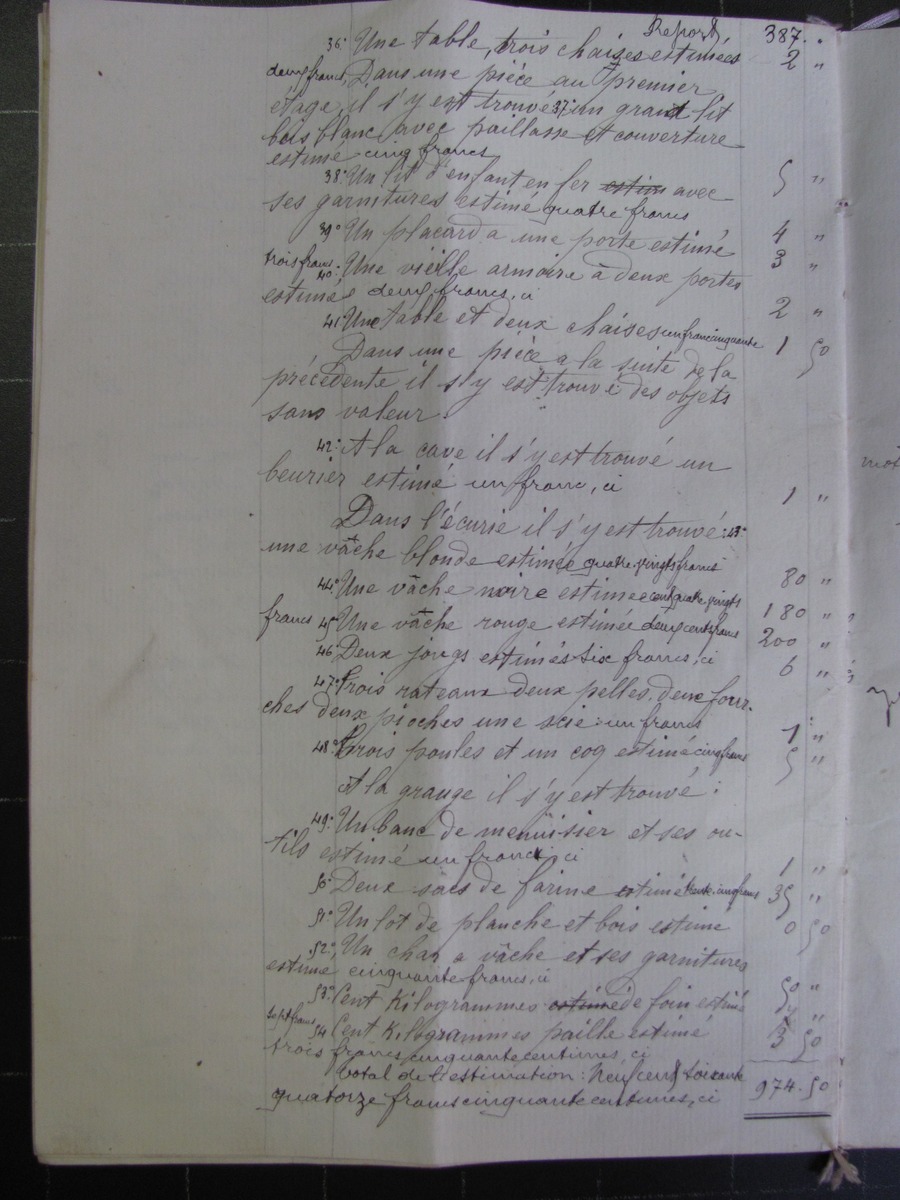 Report 387. "
36° Une table, trois chaises estimées 2 "
deux francs, Dans une pièce au premier
étage, il s'y est trouvé 37° un grand lit
bois blanc avec paillasse et couverture
estimé cinq francs 5 "
38° Un lit d'enfant en fer estim avec
ses garnitures estimé quatre francs 4 "
39° Un placard a une porte estimé
trois francs 3 "
40° Une vieille armoire à deux portes
estimée deux francs, ci 2 "
41 Une table et deux chaises un franc cinquante 1 50
Dans une pièce a la suite de la
précédente il s'y est trouvé des objets
sans valeur.
42° A la cave il s'y est trouvé un
beurier estimé un franc, ci 1 "
Dans l'écurie il s'y est trouvé: 43°
une vâche blonde estimée quatre vingts francs 80 "
44° Une vâche noire estimée cent quatre vingts 180 "
francs 45° Une vâche rouge estimée deux cents francs 200 "
46° Deux jougs estimés six francs, ci 6 "
47° Trois rateaux deux pelles, deux four-
ches deux pioches une scie un franc 1 "
48° Trois poules et un coq estimé cinq francs 5 "
A la grange il s'y est trouvé :
49° Un banc de menuisier et ses ou-
tils estimé un franc, ci 1 "
50° Deux sacs de farine estimé trente cinq francs 35 "
51° Un lot de planche et bois estimé 0 50
52° Un char a vâche et ses garnitures
estimé cinquante francs, ci 50 "
53° Cent Kilogrammes estimé de foin estimé
sept francs "
54 Cent Kilogrammes paille estimé 3 50
trois francs cinquante centimes, ci
Total de l'estimation : Neuf cent soixante
quatorze francs cinquante centimes, ci 974. 50